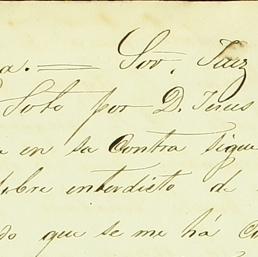 a. = Sor. Juez
Soto por D. Jesus
en su Contra sigue
sobre interdicto de
do que se me há